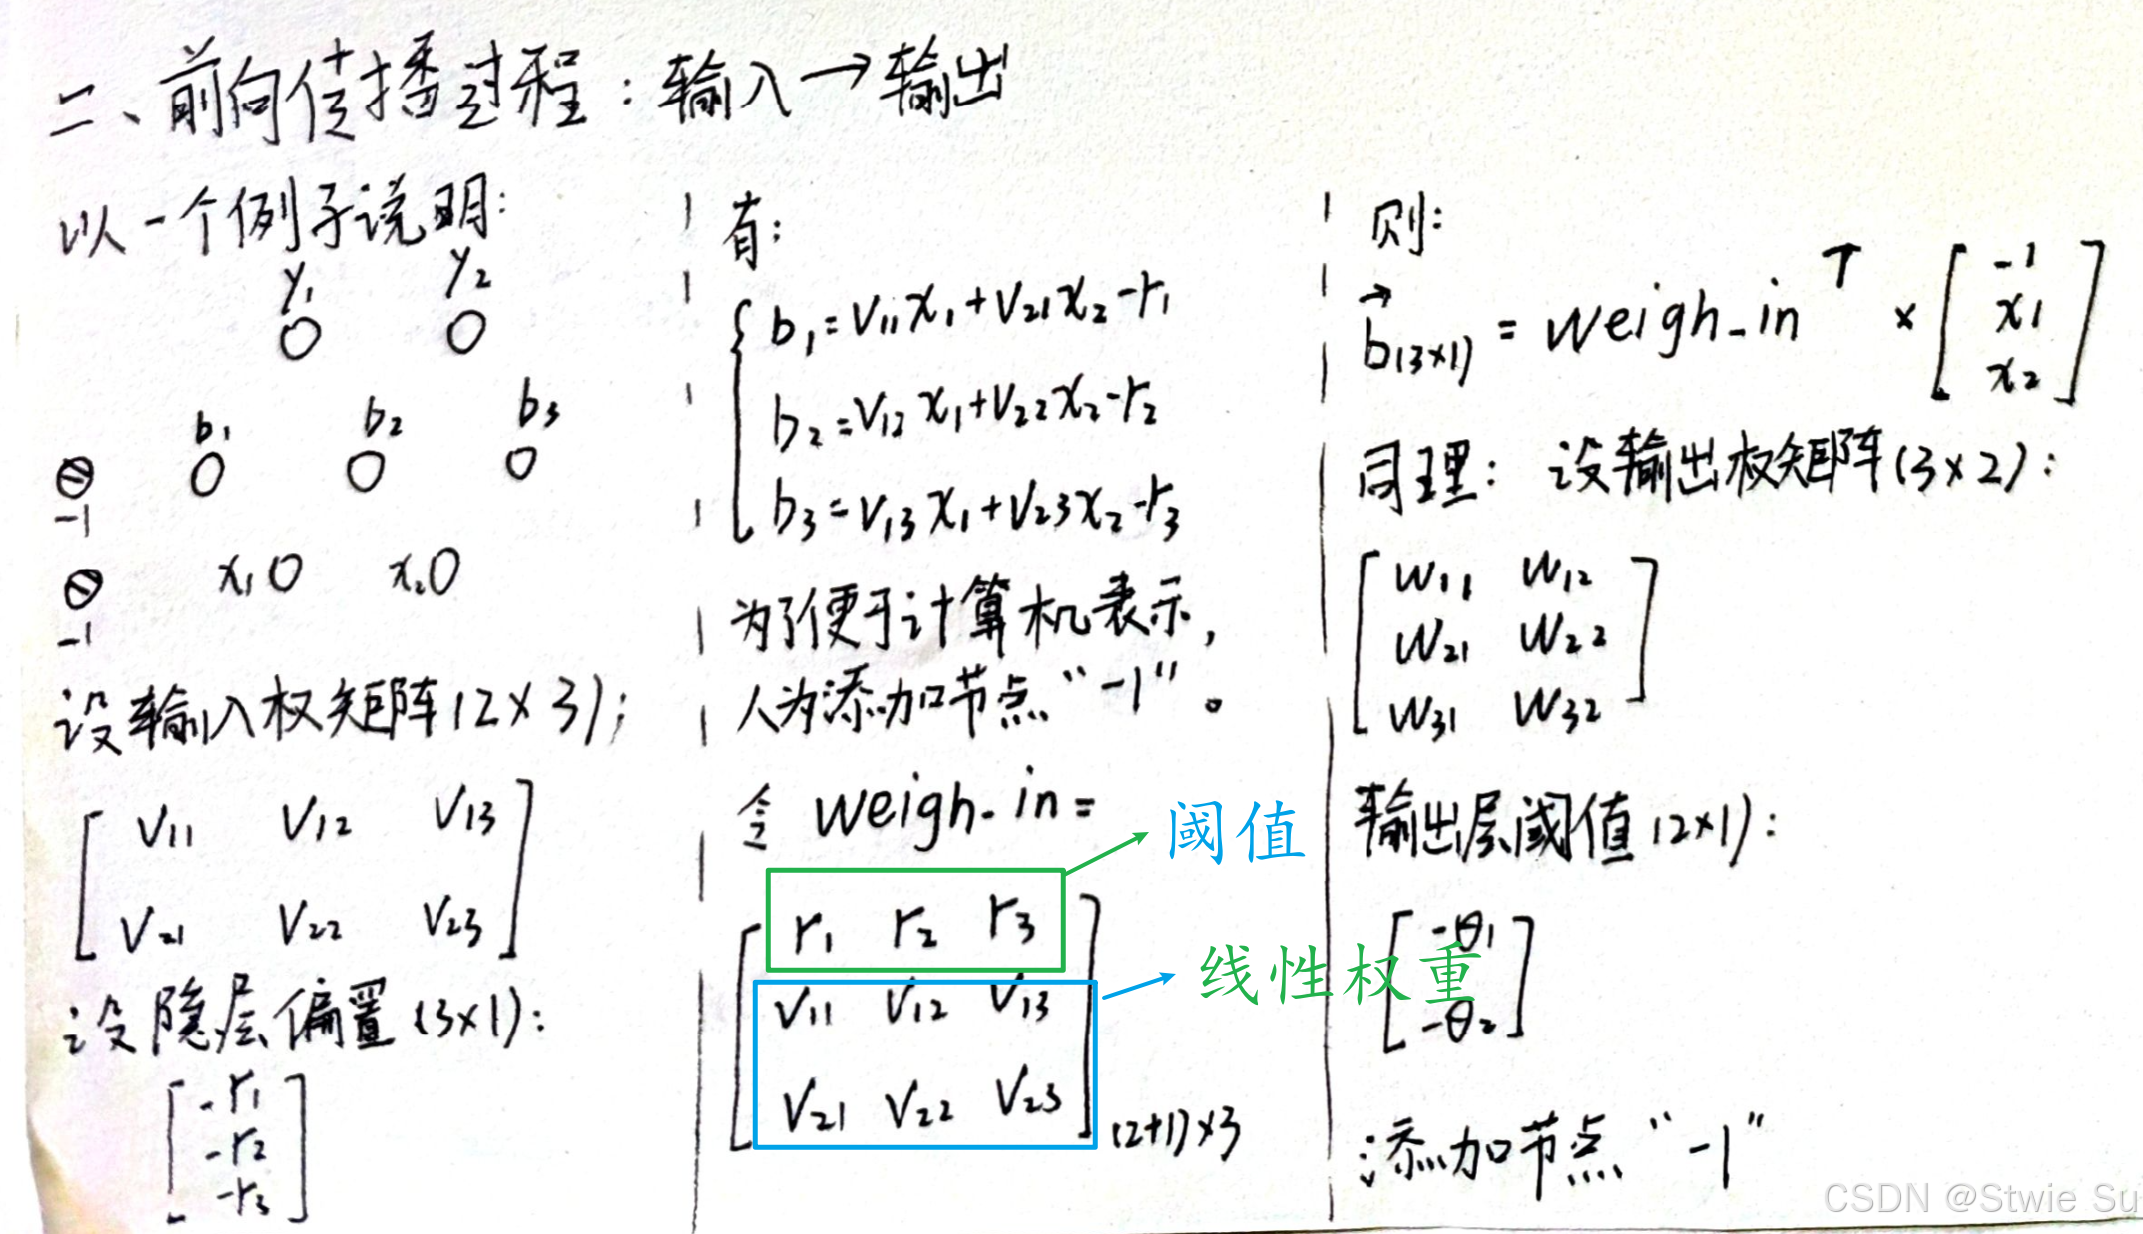 二、前向传播过程:输入→输出
以一个例子说明:
y₁ y₂
b₁ b₂ b₃
-1
x₁ x₂
-1
设输入权矩阵(2×3):
v₁₁ v₁₂ v₁₃
v₂₁ v₂₂ v₂₃
设隐层偏置(3×1):
-r₁
-r₂
-r₃
有:
b₁=v₁₁x₁+v₂₁x₂-r₁
b₂=v₁₂x₁+v₂₂x₂-r₂
b₃=v₁₃x₁+v₂₃x₂-r₃
为了便于计算机表示,
人为添加节点“-1”。
令 weigh_in=
阈值
r₁ r₂ r₃
线性权重
v₁₁ v₁₂ v₁₃
v₂₁ v₂₂ v₂₃
(2+1)×3
则:
b⃗(3×1) = weigh_in^T × [-1
x₁
x₂]
同理: 设输出权矩阵(3×2):
w₁₁ w₁₂
w₂₁ w₂₂
w₃₁ w₃₂
输出层阈值(2×1):
-θ₁
-θ₂
添加节点“-1”
CSDN @Stwie Su